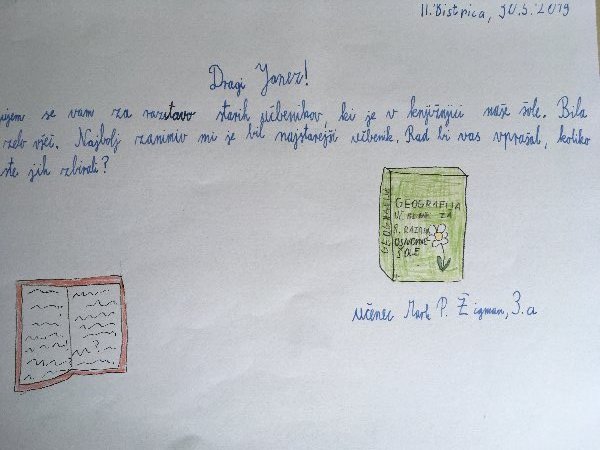 Il. Bistrica, 30.5.2019
Dragi Janez!
ujem se vam za razstavo starih učbenikov, ki je v knjižnjici naše šole. Bila
zelo všeč. Najbolj zanimiv mi je bil najstarejši učbenik. Rad bi vas vprašal, koliko
ste jih zbirali?
GEOGRAFIJA
GEOGRAFIJA
ZA
RAZRED
OSNOVNE
ŠOLE
?
učenec Mark P. Žigman, 3.a